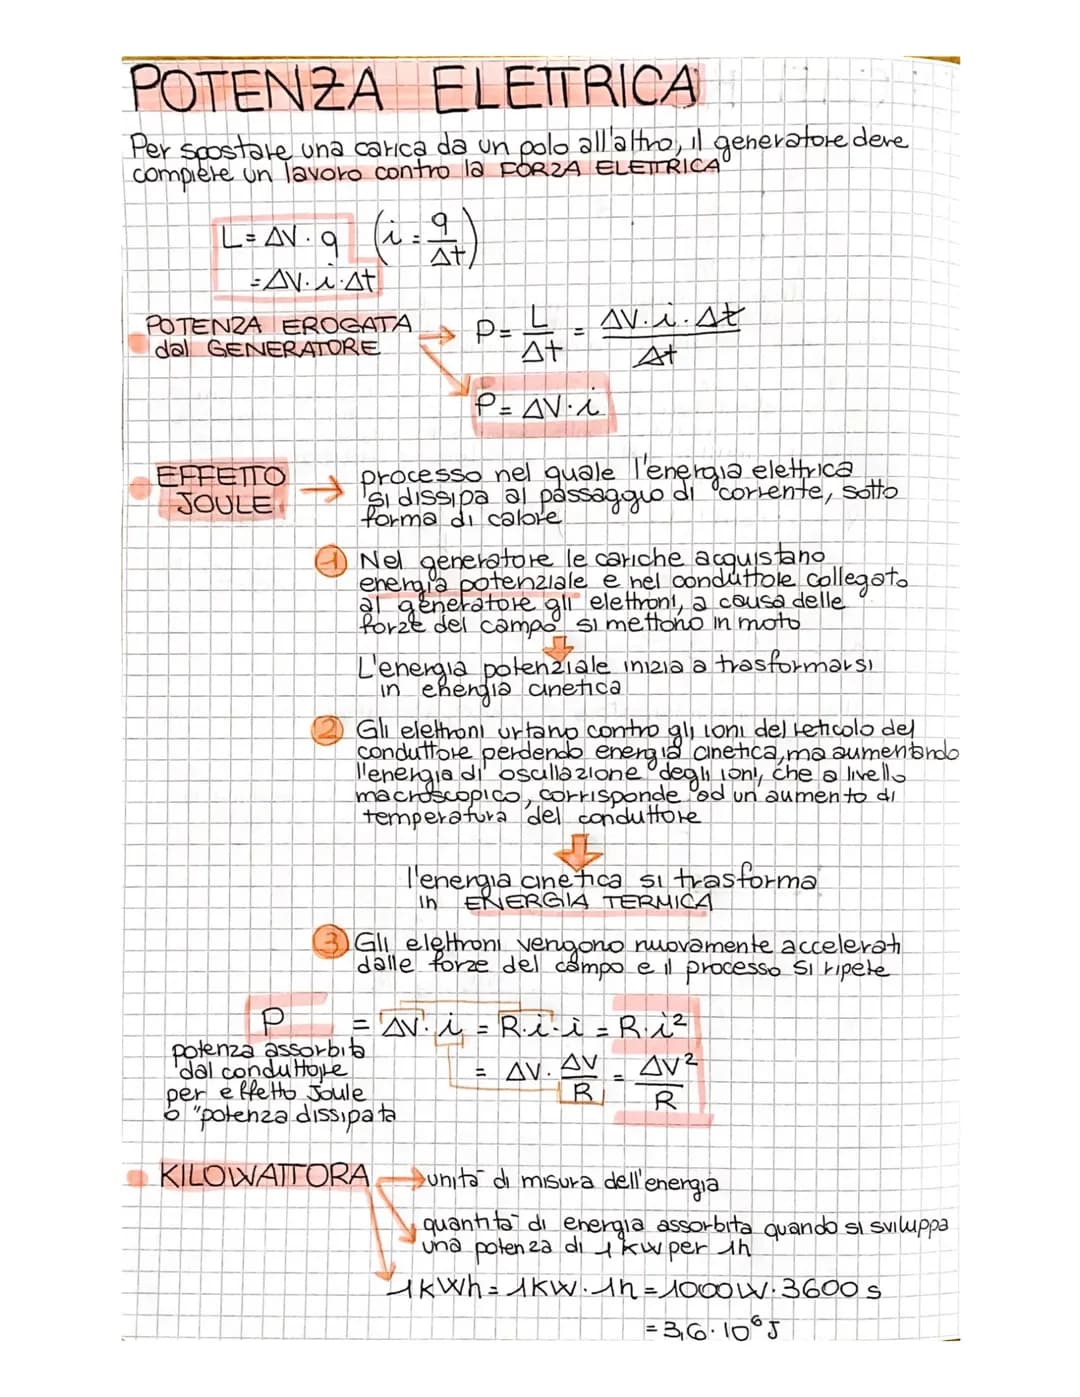 POTENZA ELETTRICA
Per spostare una carica da un polo all'altro, il generatore deve
compiere un lavoro contro la FORZA ELETTRICA
L = ΔV · q (i = q/Δt)
= ΔV · i · Δt
POTENZA EROGATA
dal GENERATORE
→ P = L/Δt = ΔV · i · Δt/Δt
P = ΔV · i
EFFETTO
JOULE
→ processo nel quale l'energia elettrica
si dissipa al passaggio di corrente, sotto
forma di calore
1 Nel generatore le cariche acquistano
energia potenziale e nel conduttore collegato
al generatore gli elettroni, a causa delle
forze del campo si mettono in moto
L'energia potenziale inizia a trasformarsi
in energia cinetica
2 Gli elettroni urtano contro gli ioni del reticolo del
conduttore perdendo energia cinetica, ma aumentando
l'energia di oscillazione degli ioni, che a livello
macroscopico, corrisponde ad un aumento di
temperatura del conduttore
l'energia cinetica si trasforma
in ENERGIA TERMICA
3 Gli elettroni vengono nuovamente accelerati
dalle forze del campo e il processo si ripete
P = ΔV · i = R · i · i = R · i²
= ΔV · ΔV/R = ΔV²/R
potenza assorbita
dal conduttore
per effetto Joule
o "potenza dissipata
KILOWATTORA → unità di misura dell'energia
quantità di energia assorbita quando si sviluppa
una potenza di 1 kW per 1h
1kWh = 1KW · 1h = 1000W · 3600 s
= 3,6 · 10⁶ J